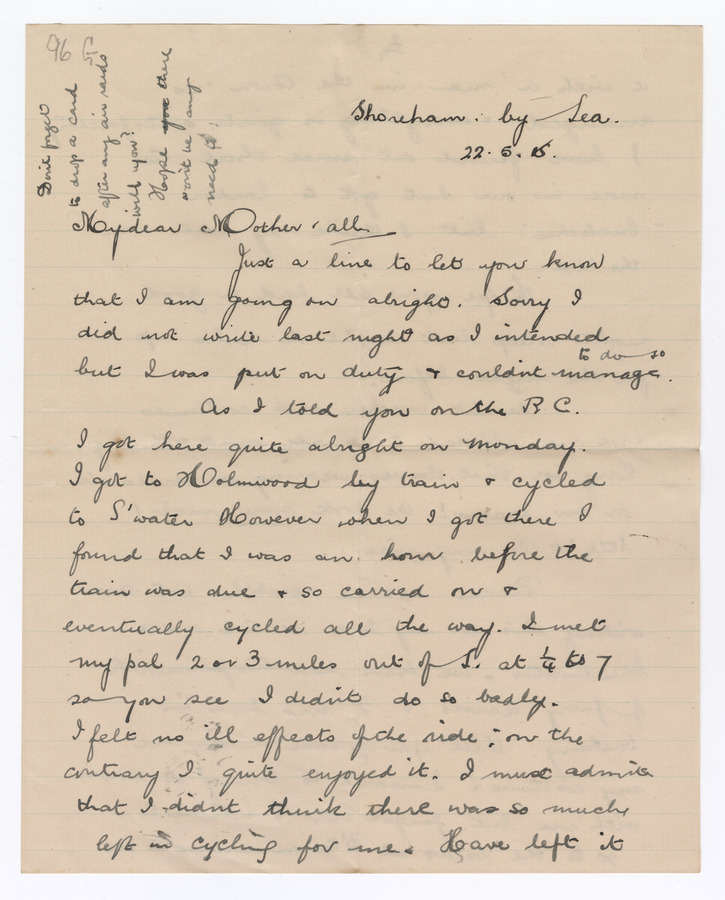 96
5
Dont forget
to drop a card
after any air raids
will you?
Hope you there
won't be any
need to.
Shoreham. by Sea.
22. 5. 15.
My dear Mother & all
Just a line to let you know
that I am going on alright. Sorry I
did not write last night as I intended
to do so
but I was put on duty & couldnt manage.
As I told you on the P.C.
I got here quite alright on Monday.
I got to Holmwood by train & cycled
to S'water However when I got there I
found that I was an hour before the
train was due & so carried on &
eventually cycled all the way. I met
my pal 2 or 3 miles out of S. at ¼ to 7
so you see I didnt do so badly.
I felt no ill effects of the ride; on the
contrary I quite enjoyed it. I must admit
that I didnt think there was so much
left in cycling for me. Have left it